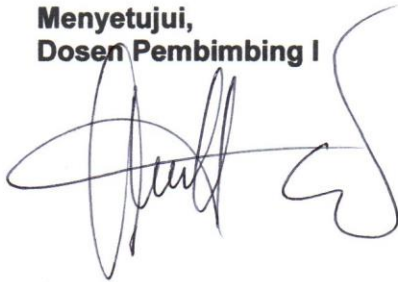 Menyetujui,
Dosen Pembimbing I